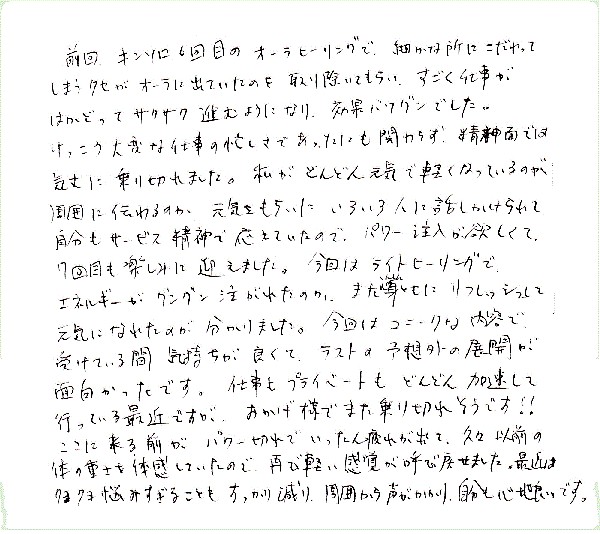 前回、キンソロ6回目のオーラヒーリングで、細かな所にこだわって
しまうクセがオーラに出ていたのを取り除いてもらい、すごく仕事が
はかどってサクサク進むようになり、効果バツグンでした。
けっこう大変な仕事の忙しさであったにも関わらず、精神面では
気丈に乗り切れました。私がどんどん元気で軽くなっているのが
周囲に伝わるのか、元気をもらいにいろいろ人に話しかけられて
自分もサービス精神で応えていたので、パワー注入が欲しくて、
7回目も楽しみに迎えました。今回はライトヒーリングで、
エネルギーがグングン注がれたのか、また噂とせにリフレッシュして
元気になれたのが分かりました。今回はユニークな内容で、
受けている間気持ちが良くて、ラストの予想外の展開が
面白かったです。仕事もプライベートもどんどん加速して
行っている最近ですが、おかげ様でまた乗り切れそうです!!
ここに来る前がパワー切れでいったん疲れが出て、久々以前の
体の重さを体感していたので、再び軽い感覚が呼び戻せました。最近は
クヨクヨ悩みすぎることもすっかり減り、周囲から声がかかり、自分も心地良いです。